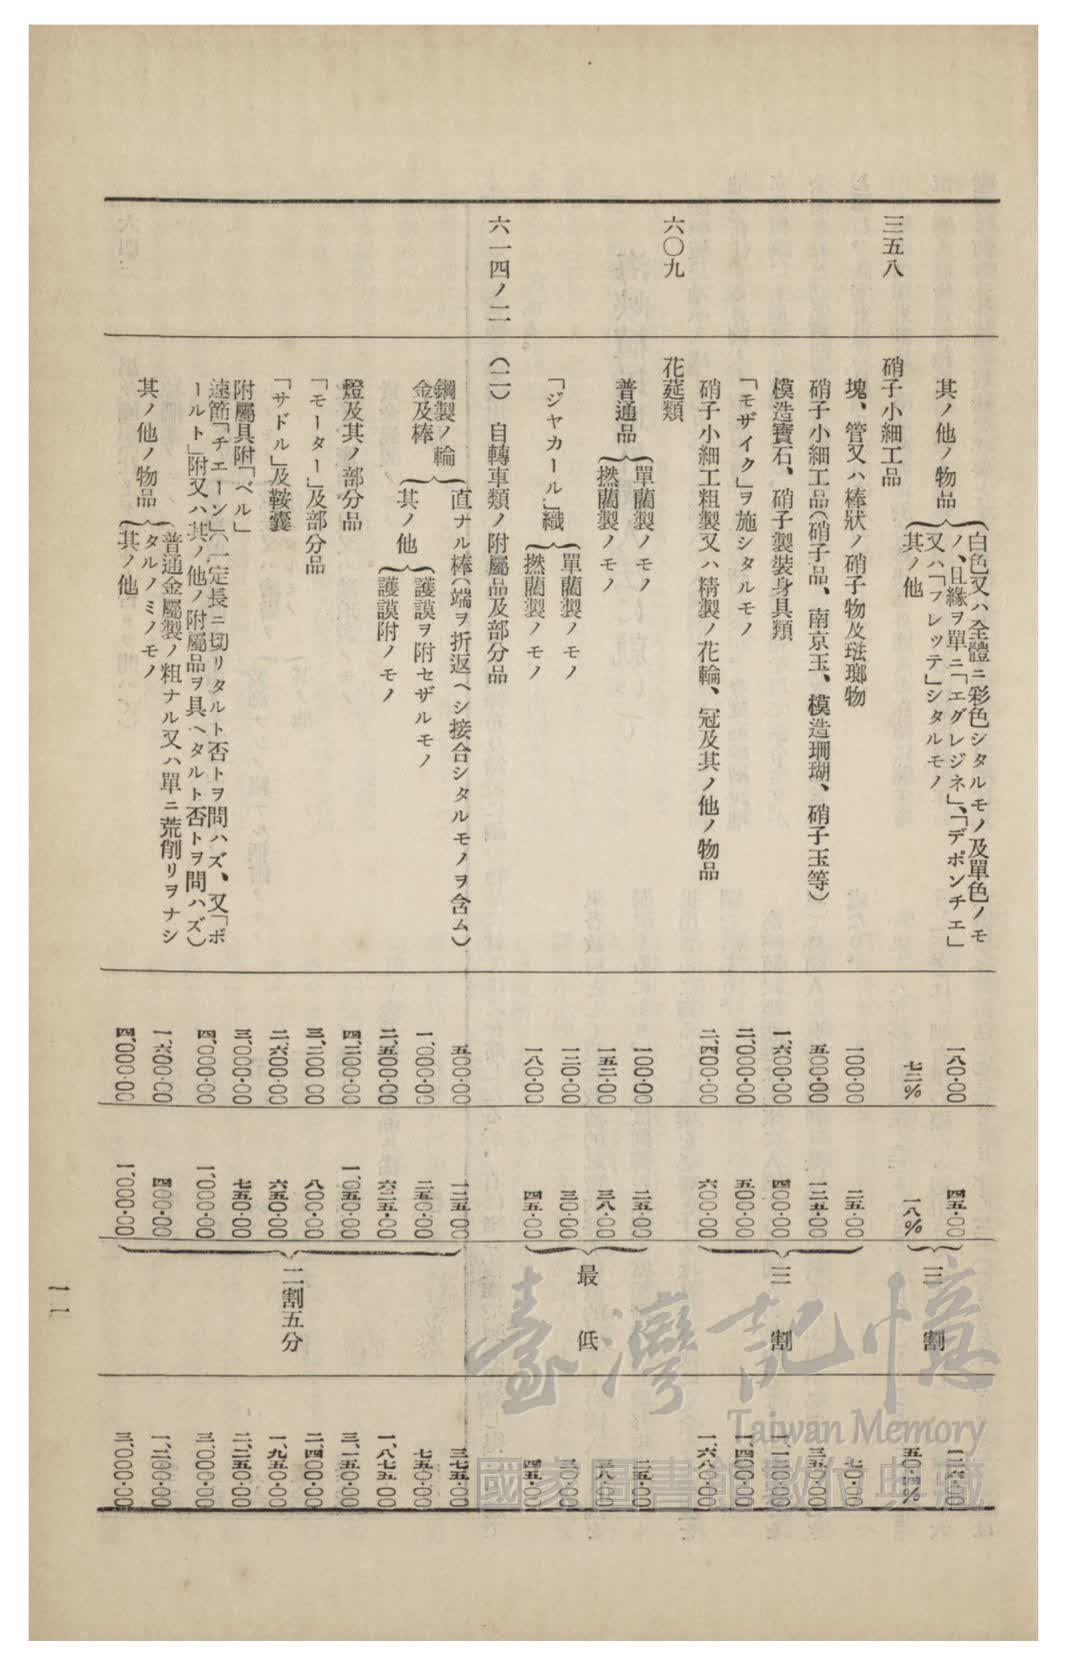 其ノ他ノ物品
白色又ハ全體ニ彩色シタルモノ及單色ノモ
ノ、且緣ヲ單ニ「エグレジネ」、「デポンチエ」
又ハ「フレッテ」シタルモノ
一八〇・〇〇
四五・〇〇
三割
一二六・〇〇
其ノ他
七二%
一八%
五〇・四%
三五八
硝子小細工品
塊、管又ハ棒狀ノ硝子物及琺瑯物
一〇〇・〇〇
二五・〇〇
三割
七〇・〇〇
硝子小細工品(硝子品、南京玉、模造珊瑚、硝子玉等)
五〇〇・〇〇
一二五・〇〇
三五〇・〇〇
模造寶石、硝子製裝身具類
一、六〇〇・〇〇
四〇〇・〇〇
一、一二〇・〇〇
「モザイク」ヲ施シタルモノ
二、〇〇〇・〇〇
五〇〇・〇〇
一、四〇〇・〇〇
硝子小細工粗製又ハ精製ノ花輪、冠及其ノ他ノ物品
二、四〇〇・〇〇
六〇〇・〇〇
一、六八〇・〇〇
六〇九
花莚類
普通品
單藺製ノモノ
一〇〇・〇〇
二五・〇〇
最低
二五・〇〇
撚藺製ノモノ
一五二・〇〇
三八・〇〇
三八・〇〇
「ジヤカール」織
單藺製ノモノ
一二〇・〇〇
三〇・〇〇
三〇・〇〇
撚藺製ノモノ
一八〇・〇〇
四五・〇〇
四五・〇〇
六一四ノ二
(二) 自轉車類ノ附屬品及部分品
鋼製ノ輪
金及棒
直ナル棒(端ヲ折返ヘシ接合シタルモノヲ含ム)
五〇〇・〇〇
一二五・〇〇
二割五分
三七五・〇〇
其ノ他
護謨ヲ附セザルモノ
一、〇〇〇・〇〇
二五〇・〇〇
七五〇・〇〇
護謨附ノモノ
二、五〇〇・〇〇
六二五・〇〇
一、八七五・〇〇
燈及其ノ部分品
四、二〇〇・〇〇
一、〇五〇・〇〇
三、一五〇・〇〇
「モーター」及部分品
三、二〇〇・〇〇
八〇〇・〇〇
二、四〇〇・〇〇
「サドル」及鞍囊
二、六〇〇・〇〇
六五〇・〇〇
一、九五〇・〇〇
附屬具附「ベル」
三、〇〇〇・〇〇
七五〇・〇〇
二、二五〇・〇〇
速節「チエーン」(一定長ニ切リタルト否トヲ問ハズ、又「ボ
ールト」附又ハ其ノ他ノ附屬品ヲ具ヘタルト否トヲ問ハズ)
四、〇〇〇・〇〇
一、〇〇〇・〇〇
三、〇〇〇・〇〇
其ノ他ノ物品
普通金屬製ノ粗ナル又ハ單ニ荒削リヲナシ
タルノミノモノ
一、六〇〇・〇〇
四〇〇・〇〇
一、二〇〇・〇〇
其ノ他
四、〇〇〇・〇〇
一、〇〇〇・〇〇
三、〇〇〇・〇〇
一一
臺灣記憶
Taiwan Memory
國家圖書館數位典藏